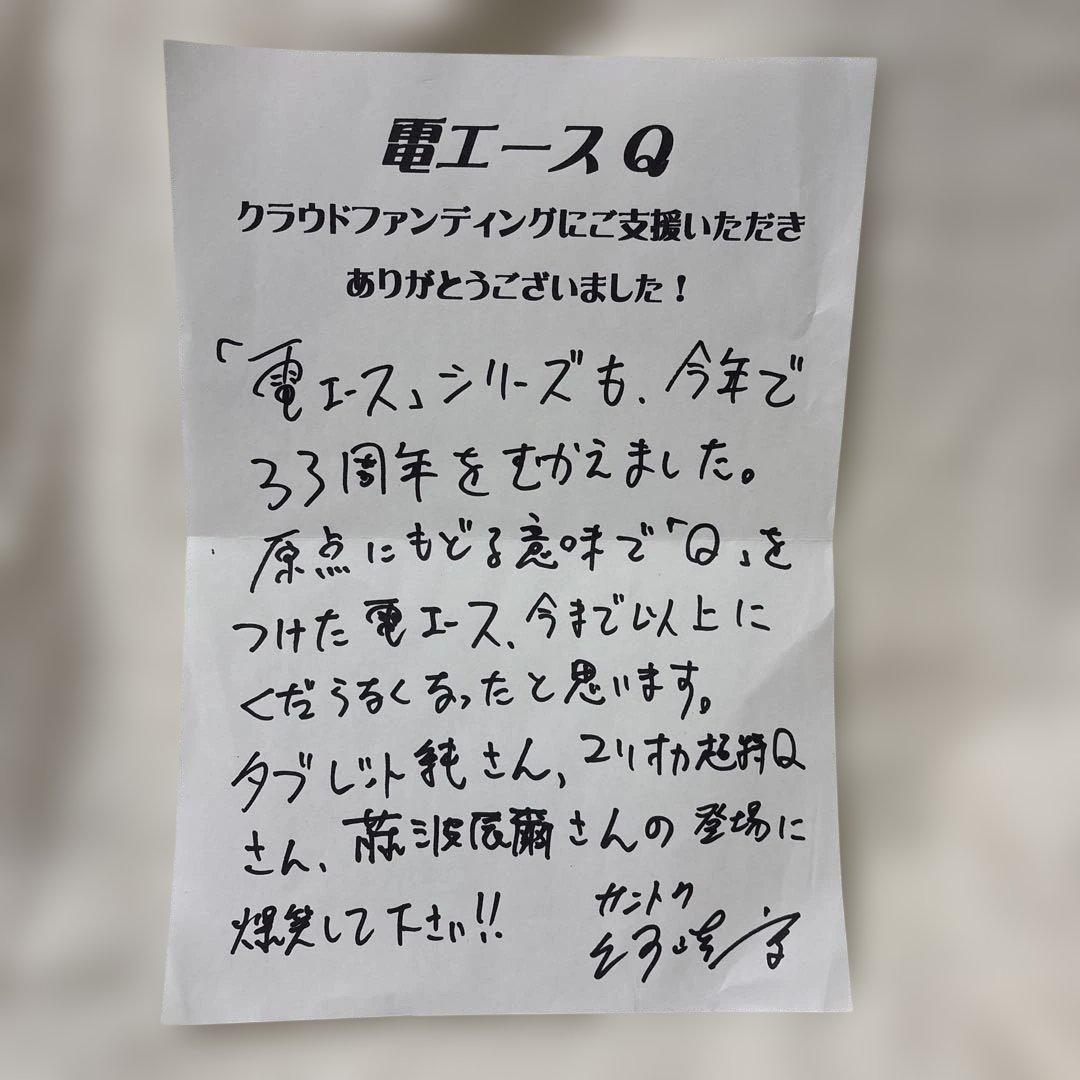 電エースQ
クラウドファンディングにご支援いただき
ありがとうございました！
「電エース」シリーズも、今年で
33周年をむかえました。
原点にもどる意味で「Q」を
つけた電エース、今まで以上に
くだらなくなったと思います。
タブレット純さん、ユリオカ超特Q
さん、藤波辰爾さんの登場に
爆笑して下さい!!
カントク
河崎実